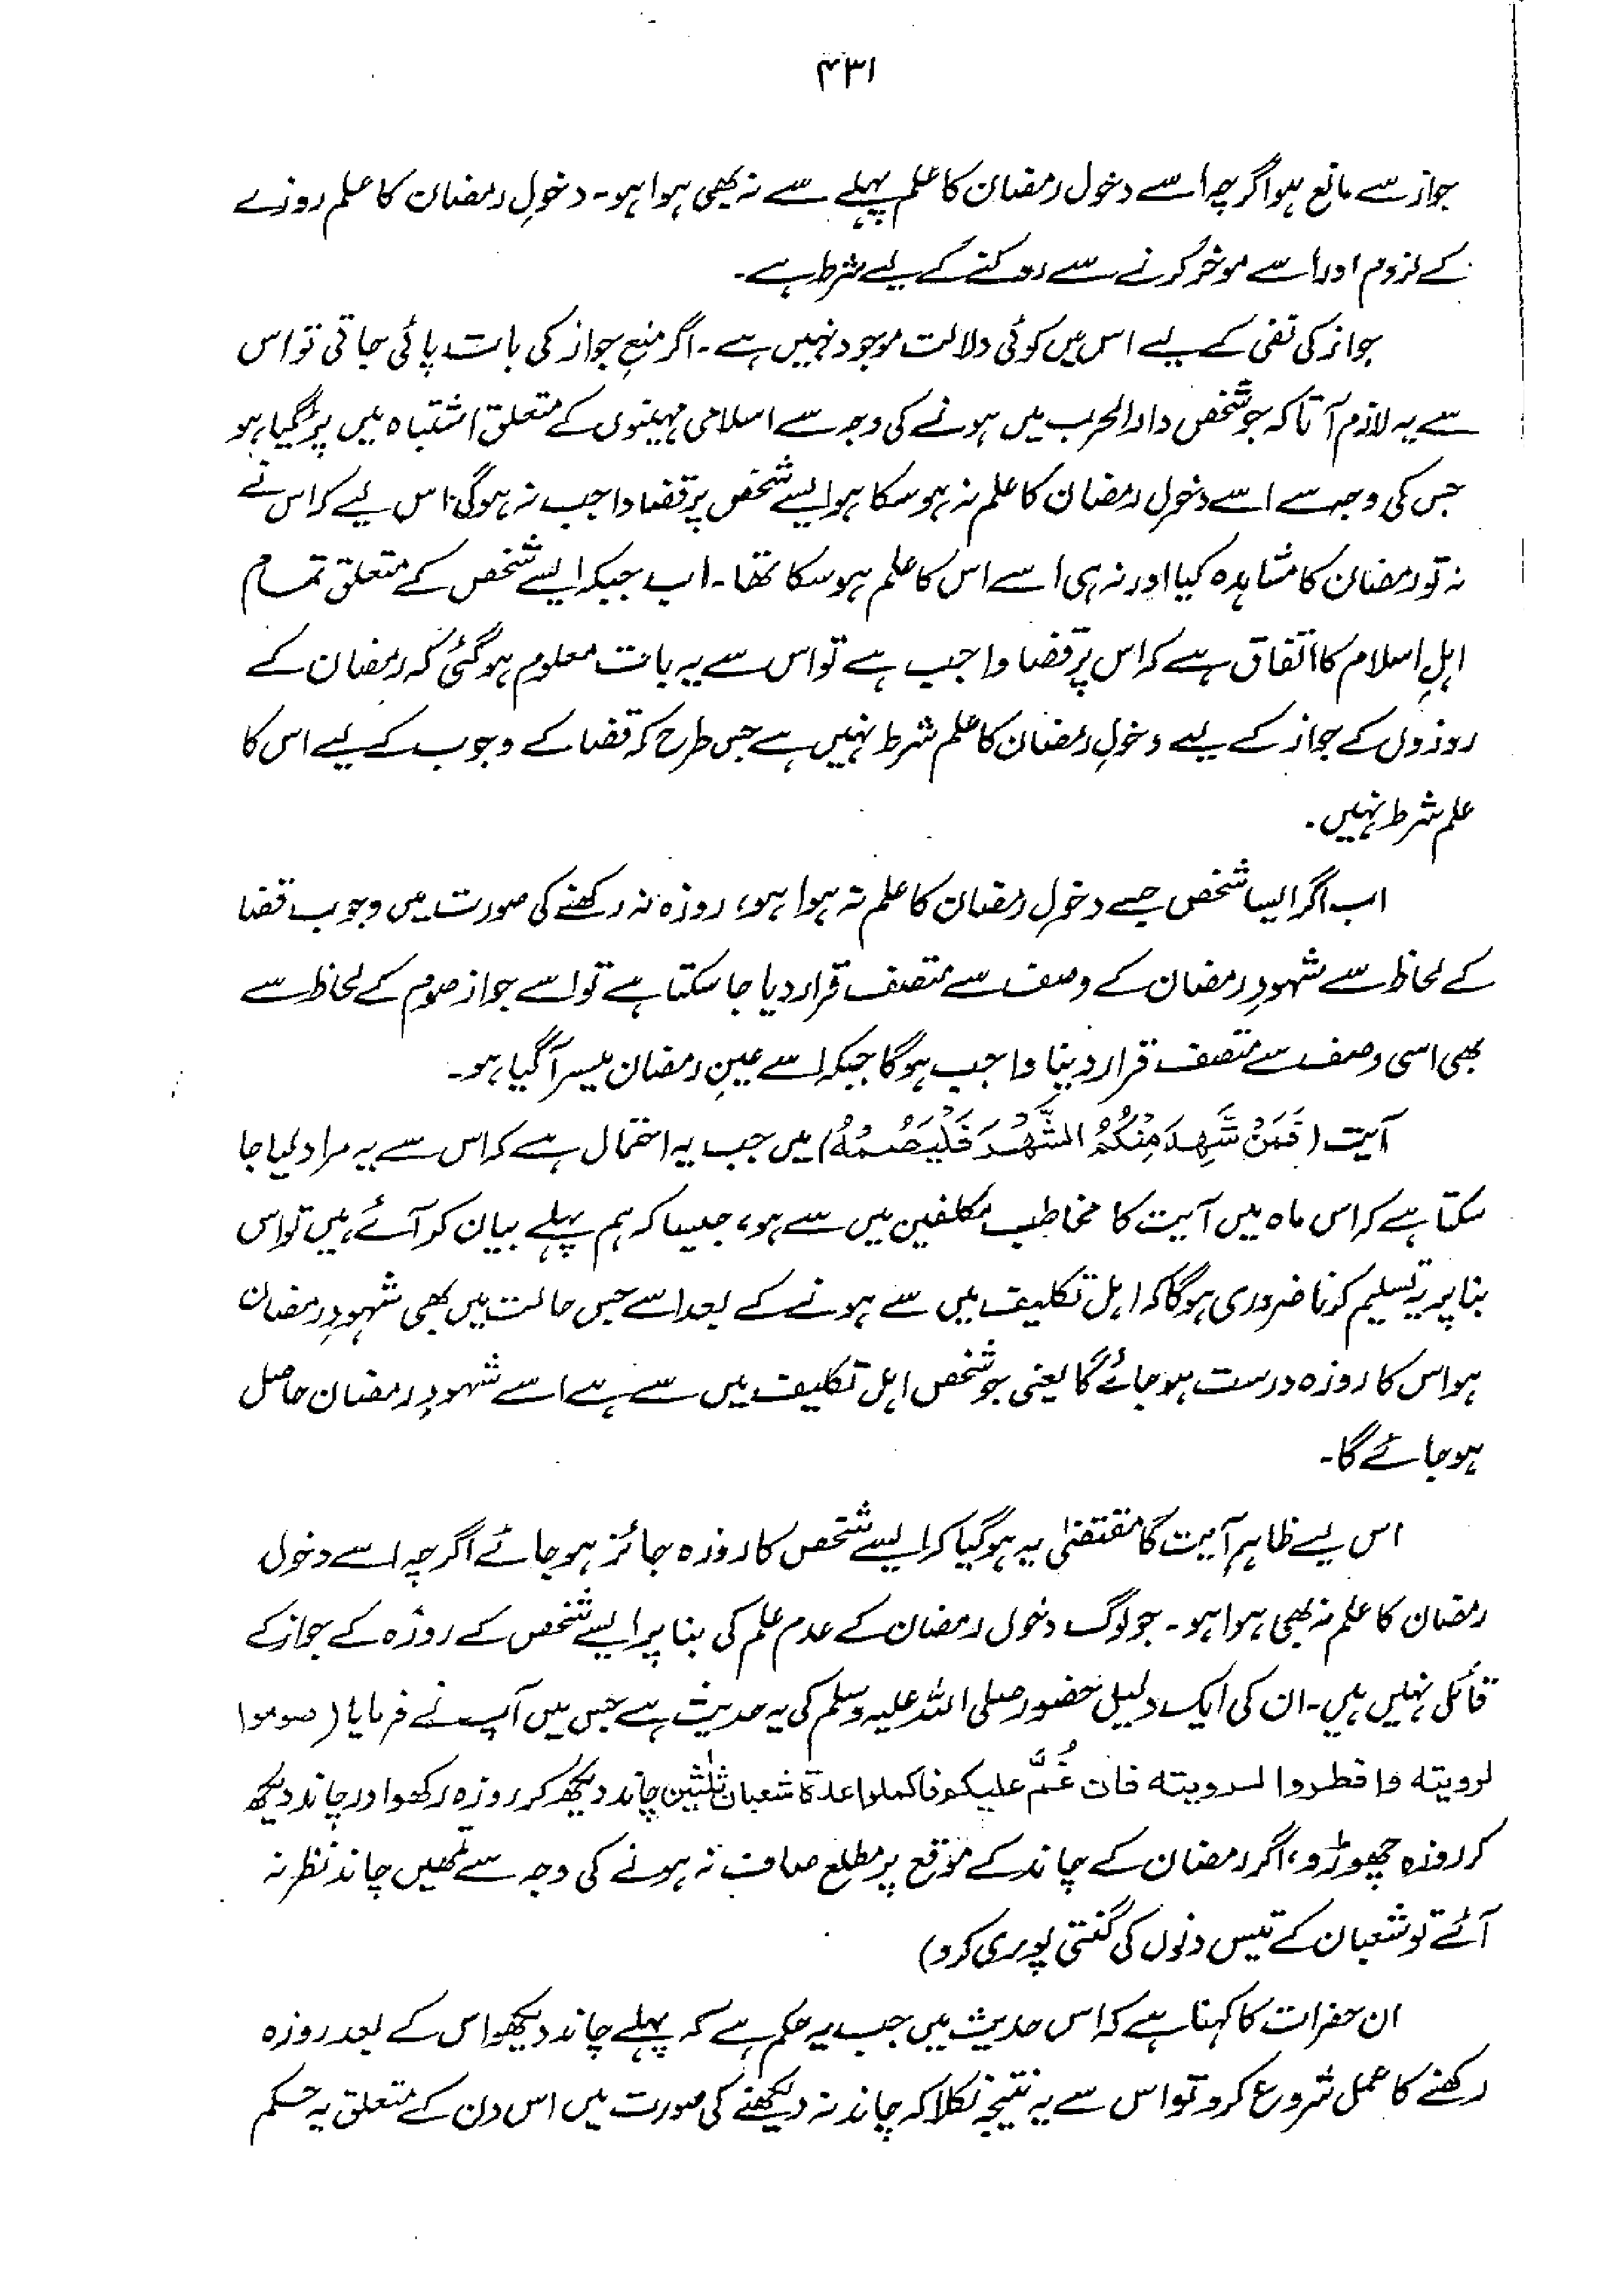 ۴۳۱
جواز سے مانع ہو اگرچہ اسے دخول رمضان کا علم پہلے سے نہ بھی ہوا ہو۔ دخولِ رمضان کا علم روزے
کے لزوم اور اسے موخر کرنے سے روکنے کے لیے شرط ہے۔
جواز کی نفی کے لیے اس میں کوئی دلالت موجود نہیں ہے۔ اگر منعِ جواز کی بات پائی جاتی تو اس
سے یہ لازم آتا کہ جو شخص دارالحرب میں ہونے کی وجہ سے اسلامی مہینوں کے متعلق اشتباہ میں پڑ گیا ہو
جس کی وجہ سے اسے دخولِ رمضان کا علم نہ ہو سکا ہو ایسے شخص پر قضا واجب نہ ہوگی اس لیے کہ اس نے
نہ تو رمضان کا مشاہدہ کیا اور نہ ہی اسے اس کا علم ہو سکا تھا۔ اب جبکہ ایسے شخص کے متعلق تمام
اہلِ اسلام کا اتفاق ہے کہ اس پر قضا واجب ہے تو اس سے یہ بات معلوم ہو گئی کہ رمضان کے
روزوں کے جواز کے لیے دخولِ رمضان کا علم شرط نہیں ہے جس طرح کہ قضا کے وجوب کے لیے اس کا
علم شرط نہیں۔
اب اگر ایسا شخص جسے دخولِ رمضان کا علم نہ ہوا ہو، روزہ نہ رکھنے کی صورت میں وجوب قضا
کے لحاظ سے شہودِ رمضان کے وصف سے متصف قرار دیا جا سکتا ہے تو اسے جواز صوم کے لحاظ سے
بھی اسی وصف سے متصف قرار دینا واجب ہوگا جبکہ اسے عینِ رمضان میسر آ گیا ہو۔
آیت (فَمَنْ شَهِدَ مِنْكُمُ الشَّهْرَ فَلْيَصُمْهُ) میں جب یہ احتمال ہے کہ اس سے یہ مراد لیا جا
سکتا ہے کہ اس ماہ میں آیت کا مخاطب مکلفین میں سے ہو، جیسا کہ ہم پہلے بیان کر آئے ہیں تو اس
بنا پر یہ تسلیم کرنا ضروری ہوگا کہ اہل تکلیف میں سے ہونے کے بعد اسے جس حالت میں بھی شہودِ رمضان
ہو اس کا روزہ درست ہو جائے گا یعنی جو شخص اہل تکلیف میں سے ہے اسے شہودِ رمضان حاصل
ہو جائے گا۔
اس لیے ظاہر آیت کا مقتضیٰ یہ ہو گیا کہ ایسے شخص کا روزہ جائز ہو جائے اگرچہ اسے دخول
رمضان کا علم نہ بھی ہوا ہو۔ جو لوگ دخول رمضان کے عدم علم کی بنا پر ایسے شخص کے روزہ کے جواز کے
قائل نہیں ہیں۔ ان کی ایک دلیل حضور صلی اللہ علیہ وسلم کی یہ حدیث ہے جس میں آپ نے فرمایا (صوموا
لرویته وافطروا لرویته فان غُمَّ علیکم فاکملوا عدة شعبان ثلٰثین چاند دیکھ کر روزہ رکھو اور چاند دیکھ
کر روزہ چھوڑو، اگر رمضان کے چاند کے موقع پر مطلع صاف نہ ہونے کی وجہ سے تمھیں چاند نظر نہ
آئے تو شعبان کے تیس دنوں کی گنتی پوری کرو)
ان حضرات کا کہنا ہے کہ اس حدیث میں جب یہ حکم ہے کہ پہلے چاند دیکھو اس کے بعد روزہ
رکھنے کا عمل شروع کرو تو اس سے یہ نتیجہ نکلا کہ چاند نہ دیکھنے کی صورت میں اس دن کے متعلق یہ حکم